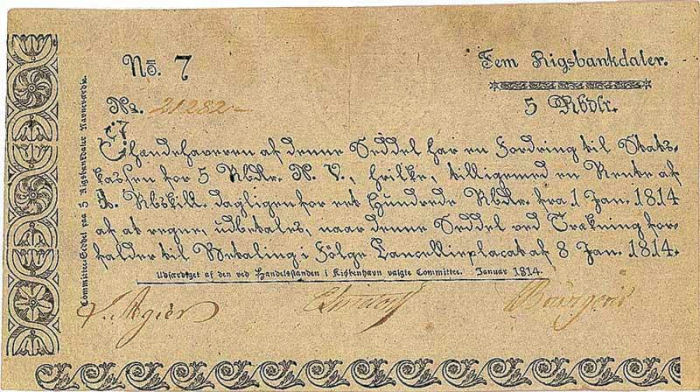 No. 7
Fem Rigsbankdaler.
No. 21282
5 Rbdlr.
Ihændehaveren af denne Seddel har en Fordring til Stats-
kassen for 5 Rbdlr. N. V., hvilke, tilligemed en Rente af
Rbskill. dagligen for et Hundrede Rbdlr. fra 1 Jan. 1814
af at regne, udbetales, naar denne Seddel ved Trækning for-
falder til Betaling i Følge Cancellieplacat af 8 Jan. 1814.
Udfærdiget af den ved Handelsstanden i Kiøbenhavn valgte Committee. Januar 1814.
Committee-Seddel paa 5 Rigsbankdaler Navneværdie.